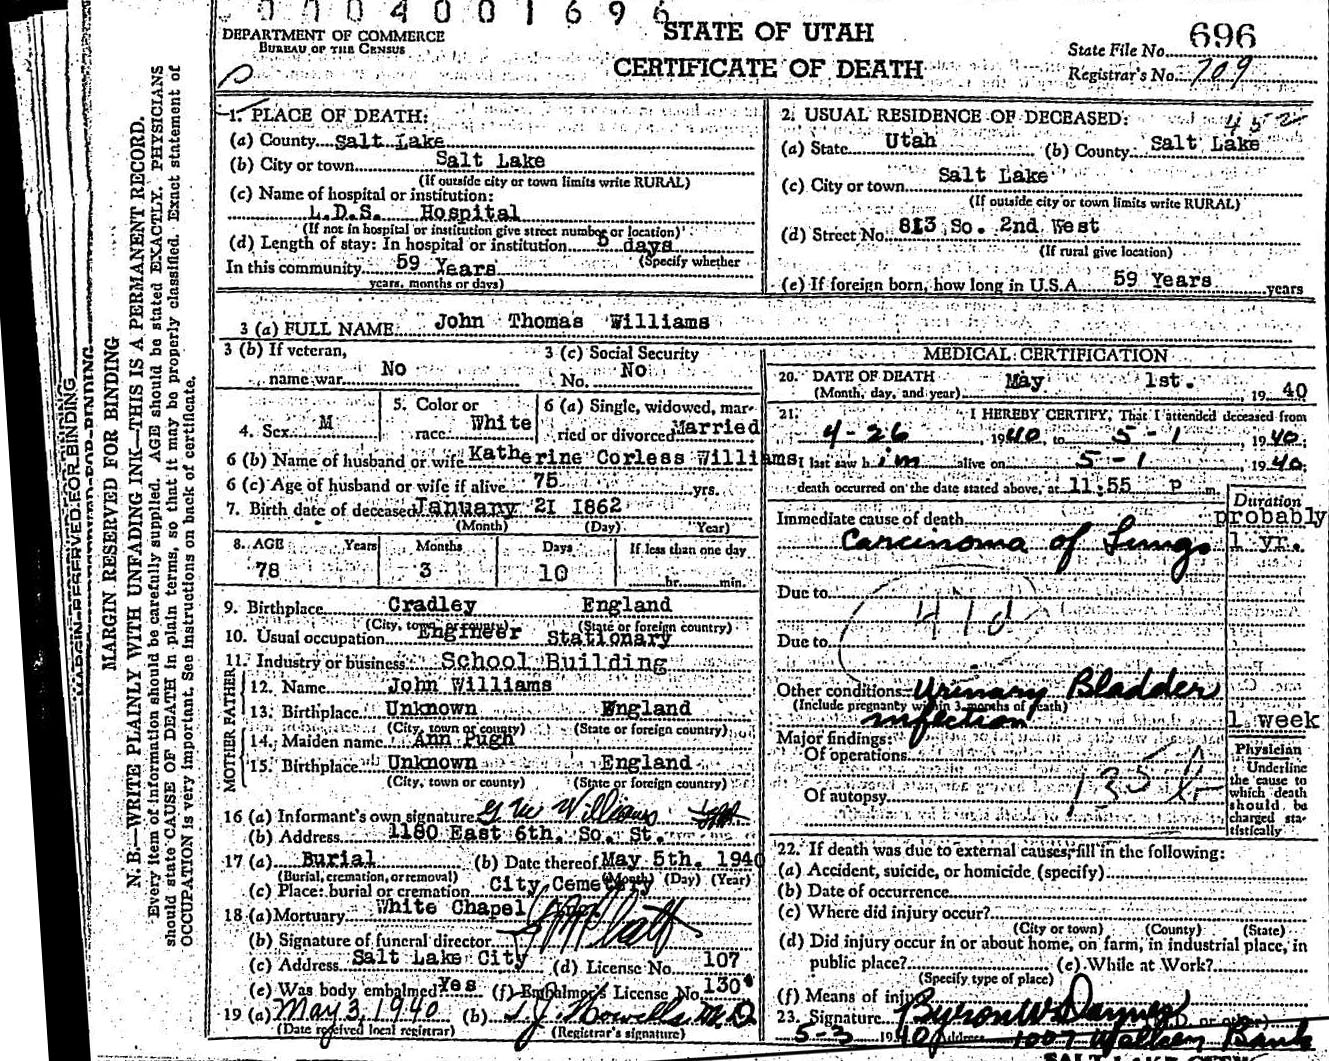 0004001696
DEPARTMENT OF COMMERCE
BUREAU OF THE CENSUS
STATE OF UTAH
CERTIFICATE OF DEATH
State File No. 696
Registrar's No. 709
MARGIN RESERVED FOR BINDING
N. B.—WRITE PLAINLY WITH UNFADING INK—THIS IS A PERMANENT RECORD.
Every item of information should be carefully supplied. AGE should be stated EXACTLY. PHYSICIANS
should state CAUSE OF DEATH in plain terms, so that it may be properly classified. Exact statement of
OCCUPATION is very important. See instructions on back of certificate.
1. PLACE OF DEATH:
(a) County Salt Lake
(b) City or town Salt Lake
(If outside city or town limits write RURAL)
(c) Name of hospital or institution:
L.D.S. Hospital
(If not in hospital or institution give street number or location)
(d) Length of stay: In hospital or institution 5 days
(Specify whether
In this community 59 Years
years, months or days)
2. USUAL RESIDENCE OF DECEASED: 452
(a) State Utah (b) County Salt Lake
(c) City or town Salt Lake
(If outside city or town limits write RURAL)
(d) Street No. 813 So. 2nd West
(If rural give location)
(e) If foreign born, how long in U.S.A. 59 Years years
3 (a) FULL NAME John Thomas Williams
3 (b) If veteran,
name war No
3 (c) Social Security
No. No
4. Sex M
5. Color or
race White
6 (a) Single, widowed, mar-
ried or divorced Married
6 (b) Name of husband or wife Katherine Corless Williams
6 (c) Age of husband or wife if alive 75 yrs.
7. Birth date of deceased January 21 1862
(Month) (Day) Year)
8. AGE Years Months Days If less than one day
78 3 10 hr. min.
9. Birthplace Cradley England
(City, town or county) (State or foreign country)
10. Usual occupation Engineer Stationary
11. Industry or business School Building
FATHER
12. Name John Williams
13. Birthplace Unknown England
(City, town or county) (State or foreign country)
MOTHER
14. Maiden name Ann Pugh
15. Birthplace Unknown England
(City, town or county) (State or foreign country)
16 (a) Informant's own signature Williams
(b) Address 1180 East 6th. So. St.
17 (a) Burial (b) Date thereof May 5th. 1940
(Burial, cremation, or removal) (Month) (Day) (Year)
(c) Place: burial or cremation City Cemetery
18 (a) Mortuary White Chapel
(b) Signature of funeral director
(c) Address Salt Lake City (d) License No. 107
(e) Was body embalmed? Yes (f) Embalmer's License No. 130
19 (a) May 3, 1940 (b) M.D.
(Date received local registrar) (Registrar's signature)
MEDICAL CERTIFICATION
20. DATE OF DEATH May 1st. 1940
(Month, day, and year)
21. I HEREBY CERTIFY, That I attended deceased from
4-26, 1940, to 5-1, 1940,
I last saw him alive on 5-1, 1940,
death occurred on the date stated above, at 11:55 P m.
Duration
Immediate cause of death probably
Carcinoma of Lungs 1 yr.
Due to 47d
Due to
Other conditions Urinary Bladder
(Include pregnancy within 3 months of death)
infection 1 week
Major findings:
Of operations
Of autopsy
135b
Physician
Underline
the cause to
which death
should be
charged sta-
tistically
22. If death was due to external causes, fill in the following:
(a) Accident, suicide, or homicide (specify)
(b) Date of occurrence
(c) Where did injury occur?
(City or town) (County) (State)
(d) Did injury occur in or about home, on farm, in industrial place, in
public place? (e) While at Work?
(Specify type of place)
(f) Means of injury
23. Signature Byron W. Daynes
5-3 1940 Address 1007 Walker Bank